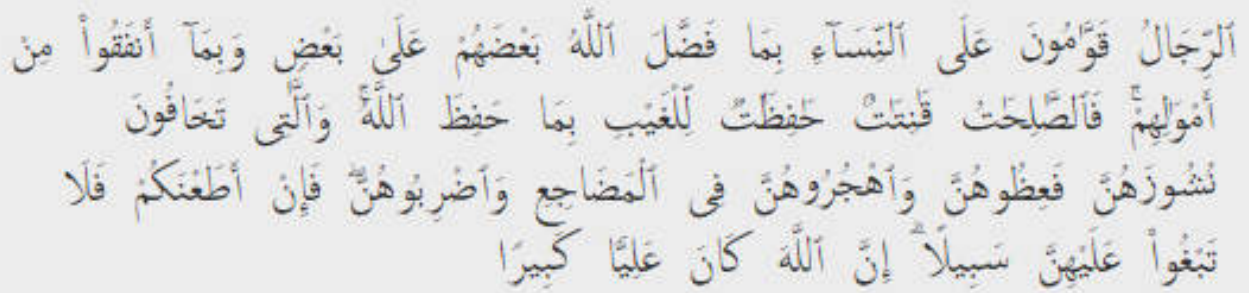 ٱلرِّجَالُ قَوَّٰمُونَ عَلَى ٱلنِّسَآءِ بِمَا فَضَّلَ ٱللَّهُ بَعْضَهُمْ عَلَىٰ بَعْضٍ وَبِمَآ أَنفَقُوا۟ مِنْ
أَمْوَٰلِهِمْ ۚ فَٱلصَّٰلِحَٰتُ قَٰنِتَٰتٌ حَٰفِظَٰتٌ لِّلْغَيْبِ بِمَا حَفِظَ ٱللَّهُ ۚ وَٱلَّٰتِى تَخَافُونَ
نُشُوزَهُنَّ فَعِظُوهُنَّ وَٱهْجُرُوهُنَّ فِى ٱلْمَضَاجِعِ وَٱضْرِبُوهُنَّ ۖ فَإِنْ أَطَعْنَكُمْ فَلَا
تَبْغُوا۟ عَلَيْهِنَّ سَبِيلًا ۗ إِنَّ ٱللَّهَ كَانَ عَلِيًّا كَبِيرًا